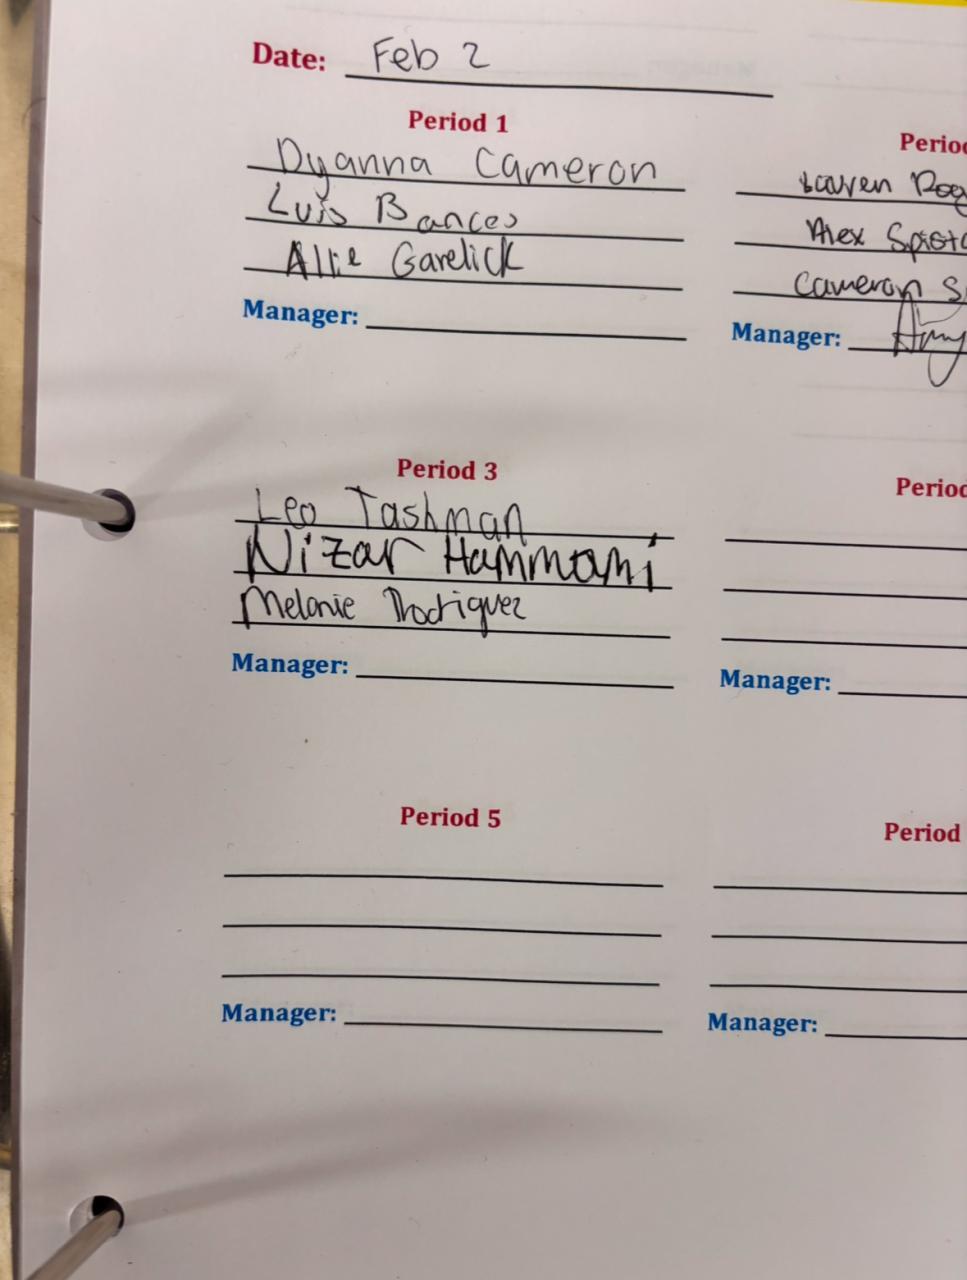 Date: Feb 2
Period 1
Dyanna Cameron
Luis Bances
Allie Garelick
Manager:
Lauren
Alex
Cameron
Manager: Amy
Period 3
Leo Tashman
Nizar Hammami
Melanie Rodriguez
Manager:
Manager:
Period 5
Manager:
Period
Manager: